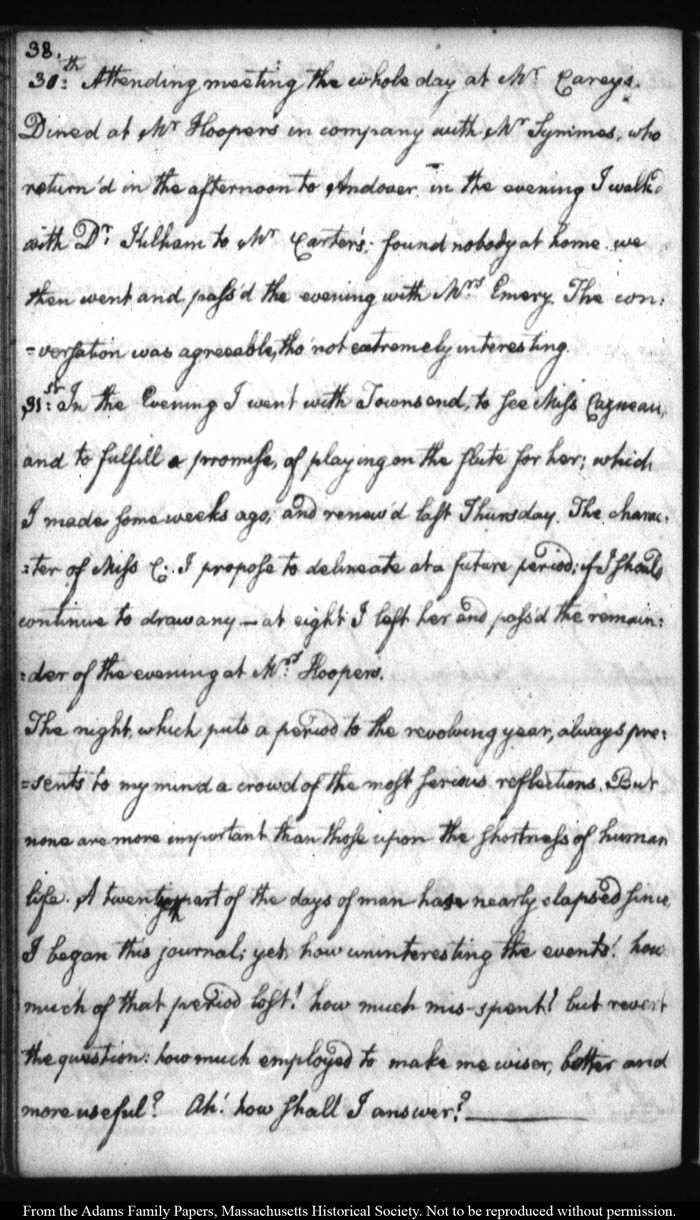 38.
30:th Attending meeting the whole day at Mr Carey's.
Dined at Mr Hoopers in company with Mr Symmes, who
return'd in the afternoon to Andover. in the evening I walk'd
with Dr: Kilham to Mr Carter's: found nobody at home. we
then went and pass'd the evening with Mrs Emery. The con:
=versation was agreeable, tho' not extremely interesting.
31:st In the Evening I went with Townsend, to see Miss Cazneau,
and to fulfill a promise, of playing on the flute for her; which
I made some weeks ago, and renew'd last Thursday. The charac:
:ter of Miss C:. I propose to delineate at a future period; if I should
continue to draw any — at eight I left her and pass'd the remain:
:der of the evening at Mrs Hoopers.
The night, which puts a period to the revolving year, always pre:
=sents to my mind a crowd of the most serious reflections. But
none are more important than those upon the shortness of human
life. A twentyth part of the days of man have nearly elapsed since
I began this journal; yet, how uninteresting the events! how
much of that period lost! how much mis-spent! but revert
the question: how much employed to make me wiser, better and
more useful? Ah! how shall I answer?
From the Adams Family Papers, Massachusetts Historical Society. Not to be reproduced without permission.